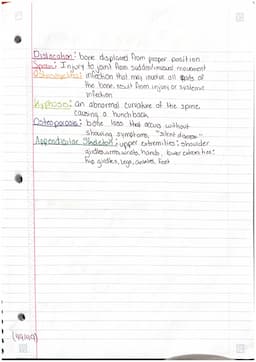 Dislocation: bone displaced from proper position
Sprain: Injury to joint from sudden/unusual movement
Osteomyelitis: infection that may involve all parts of
the bone, result from injury or systemic
infection
Kyphosis: an abnormal curvature of the spine
causing a hunchback
Osteoporosis: bone loss that occurs without
showing symptoms, "silent disease"
Appendicular Skeleton: upper extremities: shoulder
girdles, arms, wrists, hands, lower extremities:
hip girdles, legs, ankles, feet